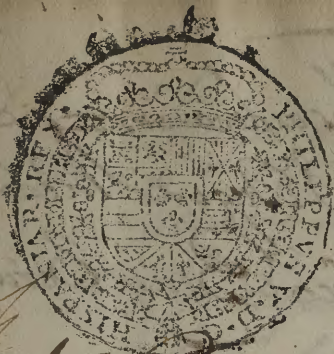 PHILIPPVS·V·D·G·HISPANIAR·REX·